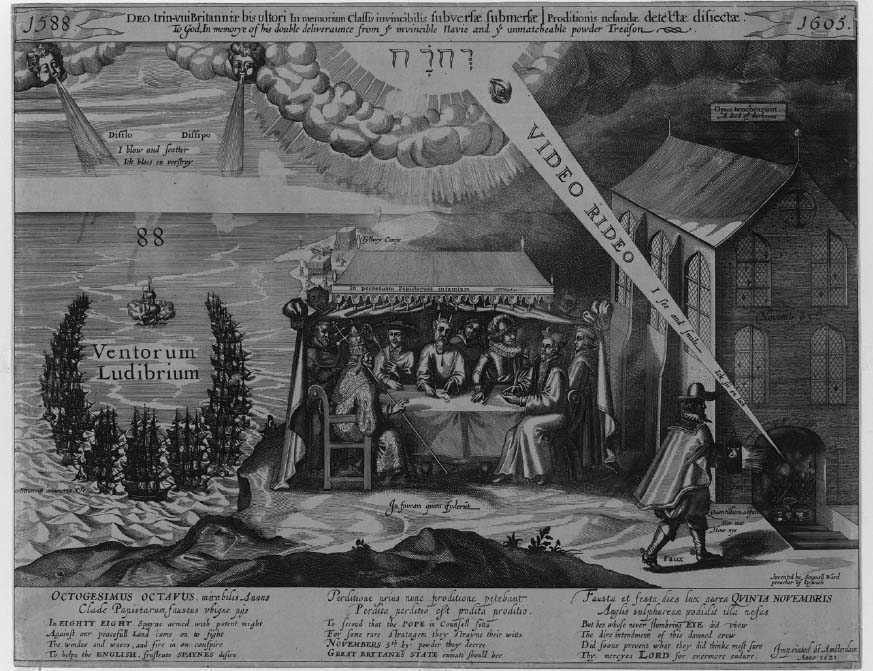 1588.
DEO trin-vni Britanniæ bis ultori In memoriam Classis invincibilis subversæ submersæ | Proditionis nefandæ detectæ disiectæ.
To God, In memorye of his double deliveraunce from yᵉ invincible Navie and yᵉ unmatcheable powder Treason.
1605.
יְהֹוָה
Difflo Dissipo
I blow and scatter
Ick blaes en verstroy
VIDEO RIDEO
I see and smile
Opus tenebrarum
A deed of darknes
88
Ventorum
Ludibrium
Tilbury Campe
In perpetuam Papistarum infamiam
Novemb. 5
In foveam quam foderunt
Faux
Invented by Samuell Ward
preacher of Ipswich
OCTOGESIMUS OCTAVUS, mirabilis Annus
Clade Papistarum faustus ubique pijs
In EIGHTY EIGHT, Spayne armed with potent might
Against our peacefull Land came on to fight
The windes and waves, and fire in one conspire
To helpe the ENGLISH, frustrate SPAYNES desire
Perditione prius nunc proditione petebant
Perdita perditio est prodita proditio.
To second that the POPE in Counsell sitts
For some rare stratagem they strayne their witts
NOVEMBERS 5th by powder they decree
GREAT BRYTANES STATE ruinate should bee
Fausta et festa dies lux aurea QUINTA NOVEMBRIS
Anglis sulphuream prodidit illa nefas
But hee whose never slumbring EYE did view
The dire intendments of this damned crew
Did soone prevent what they did thinke most sure
Thy mercyes LORD for evermore endure.
Imprinted at Amsterdam
Anno 1621.